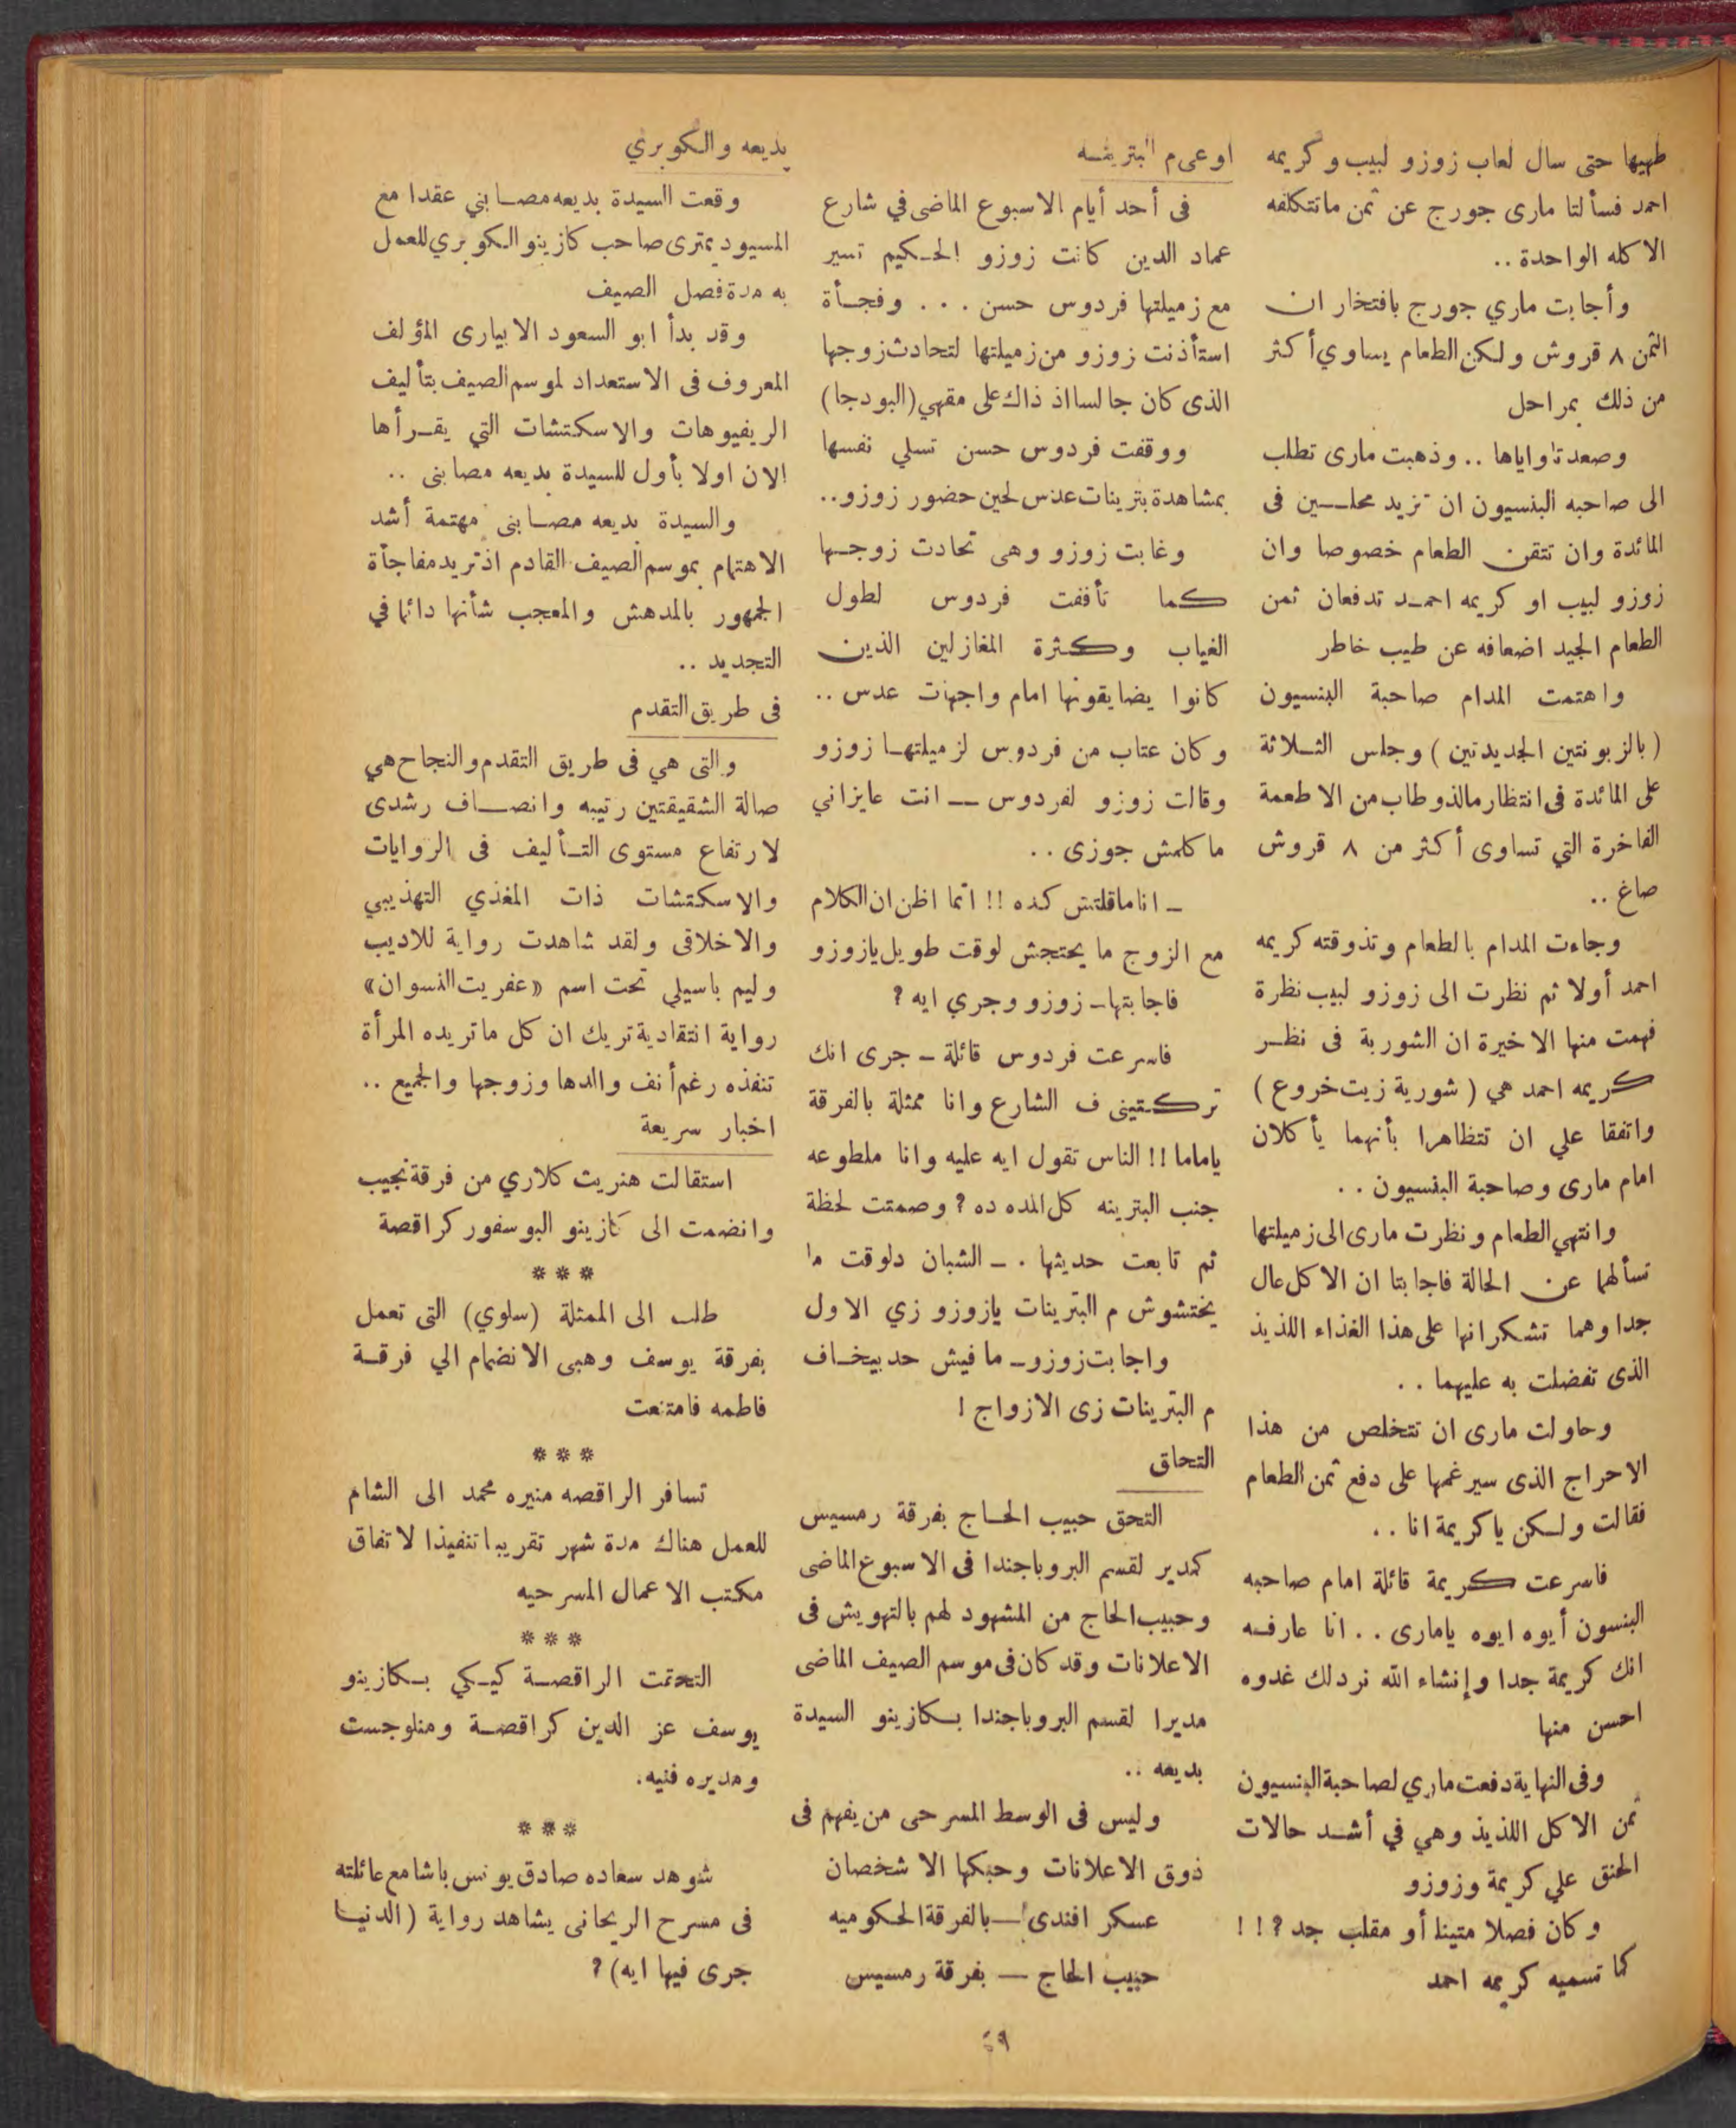 طهيها حتى سال لعاب زوزو لبيب وكريمه
احمد فسألتا مارى جورج عن ثمن ماتتكلفه
الاكله الواحدة ..
وأجابت ماري جورج بافتخار ان
الثمن ٨ قروش ولكن الطعام يساوي أكثر
من ذلك بمراحل
وصعدتا واياها .. وذهبت مارى تطلب
الى صاحبه البنسيون ان تزيد محلين فى
المائدة وان تتقن الطعام خصوصا وان
زوزو لبيب او كريمه احمد تدفعان ثمن
الطعام الجيد اضعافه عن طيب خاطر
واهتمت المدام صاحبة البنسيون
( بالزبونتين الجديدتين ) وجلس الثلاثة
على المائدة فى انتظار مالذ وطاب من الاطعمة
الفاخرة التي تساوى أكثر من ٨ قروش
صاغ ..
وجاءت المدام بالطعام وتذوقته كريمه
احمد أولا ثم نظرت الى زوزو لبيب نظرة
فهمت منها الاخيرة ان الشوربة فى نظر
كريمه احمد هي ( شوربة زيت خروع )
واتفقا علي ان تتظاهرا بأنهما يأكلان
امام مارى وصاحبة البنسيون ..
وانتهي الطعام ونظرت مارى الى زميلتها
تسألهما عن الحالة فاجابتا ان الاكل عال
جدا وهما تشكرانها على هذا الغذاء اللذيذ
الذى تفضلت به عليهما ..
وحاولت مارى ان تتخلص من هذا
الاحراج الذى سيرغمها على دفع ثمن الطعام
فقالت ولكن ياكريمة انا ..
فاسرعت كريمة قائلة امام صاحبه
البنسون أيوه ايوه يامارى .. انا عارفه
انك كريمة جدا وإنشاء الله نردلك غدوه
احسن منها
وفى النهاية دفعت ماري لصاحبة البنسيون
ثمن الاكل اللذيذ وهي في أشد حالات
الحنق علي كريمة وزوزو
وكان فصلا متينا أو مقلب جد ?!!
كما تسميه كريمه احمد
اوعى م البترينه
فى أحد أيام الاسبوع الماضى في شارع
عماد الدين كانت زوزو الحكيم تسير
مع زميلتها فردوس حسن ... وفجأة
استأذنت زوزو من زميلتها لتحادث زوجها
الذى كان جالسا اذ ذاك على مقهي (البودجا)
ووقفت فردوس حسن تسلي نفسها
بمشاهدة بترينات عدس لحين حضور زوزو..
وغابت زوزو وهى تحادت زوجها
كما تأففت فردوس لطول
الغياب وكثرة المغازلين الذين
كانوا يضايقونها امام واجهات عدس ..
وكان عتاب من فردوس لزميلتها زوزو
وقالت زوزو لفردوس — انت عايزاني
ماكلمش جوزى ..
ـ اناماقلتش كده !! انما اظن ان الكلام
مع الزوج ما يحتجش لوقت طويل يازوزو
فاجابتها ـ زوزو وجري ايه ?
فاسرعت فردوس قائلة ـ جرى انك
تركتينى ف الشارع وانا ممثلة بالفرقة
ياماما !! الناس تقول ايه عليه وانا ملطوعه
جنب البترينه كل المده ده ? وصمتت لحظة
ثم تابعت حديثها . ـ الشبان دلوقت ما
يختشوش م البترينات يازوزو زي الاول
واجابت زوزو ـ مافيش حد بيخاف
م البترينات زى الازواج !
التحاق
التحق حبيب الحاج بفرقة رمسيس
كمدير لقسم البروباجندا فى الاسبوع الماضى
وحبيب الحاج من المشهود لهم بالتهويش فى
الاعلانات وقد كان فى موسم الصيف الماضى
مديرا لقسم البروباجندا بكازينو السيدة
بديعه ..
وليس فى الوسط المسرحى من يفهم فى
ذوق الاعلانات وحبكها الا شخصان
عسكر افندى — بالفرقة الحكوميه
حبيب الحاج — بفرقة رمسيس
بديعه والكوبري
وقعت السيدة بديعه مصابني عقدا مع
المسيو ديمترى صاحب كازينو الكوبري للعمل
به مدة فصل الصيف
وقد بدأ ابو السعود الابيارى المؤلف
المعروف فى الاستعداد لموسم الصيف بتأليف
الريفيوهات والاسكتشات التي يقرأها
الان اولا بأول للسيدة بديعه مصابنى ..
والسيدة بديعه مصابنى مهتمة أشد
الاهتمام بموسم الصيف القادم اذ تريد مفاجأة
الجمهور بالمدهش والمعجب شأنها دائما في
التجديد ..
فى طريق التقدم
والتى هي فى طريق التقدم والنجاح هي
صالة الشقيقتين رتيبه وانصاف رشدى
لارتفاع مستوى التأليف فى الروايات
والاسكتشات ذات المغذي التهذيبي
والاخلاقى ولقد شاهدت رواية للاديب
وليم باسيلي تحت اسم «عفريت النسوان»
رواية انتقادية تريك ان كل ماتريده المرأة
تنفذه رغم أنف والدها وزوجها والجميع ..
اخبار سريعة
استقالت هنريت كلاري من فرقة نجيب
وانضمت الى كازينو البوسفور كراقصة
***
طلب الى الممثلة (سلوي) التى تعمل
بفرقة يوسف وهبى الانضمام الي فرقة
فاطمه فامتنعت
***
تسافر الراقصه منيره محمد الى الشام
للعمل هناك مدة شهر تقريبا تنفيذا لاتفاق
مكتب الاعمال المسرحيه
***
التحقت الراقصة كيكي بكازينو
يوسف عز الدين كراقصة ومنلوجست
ومديره فنيه.
***
شوهد سعاده صادق يونس باشا مع عائلته
فى مسرح الريحانى يشاهد رواية (الدنيا
جرى فيها ايه) ?
٤٩